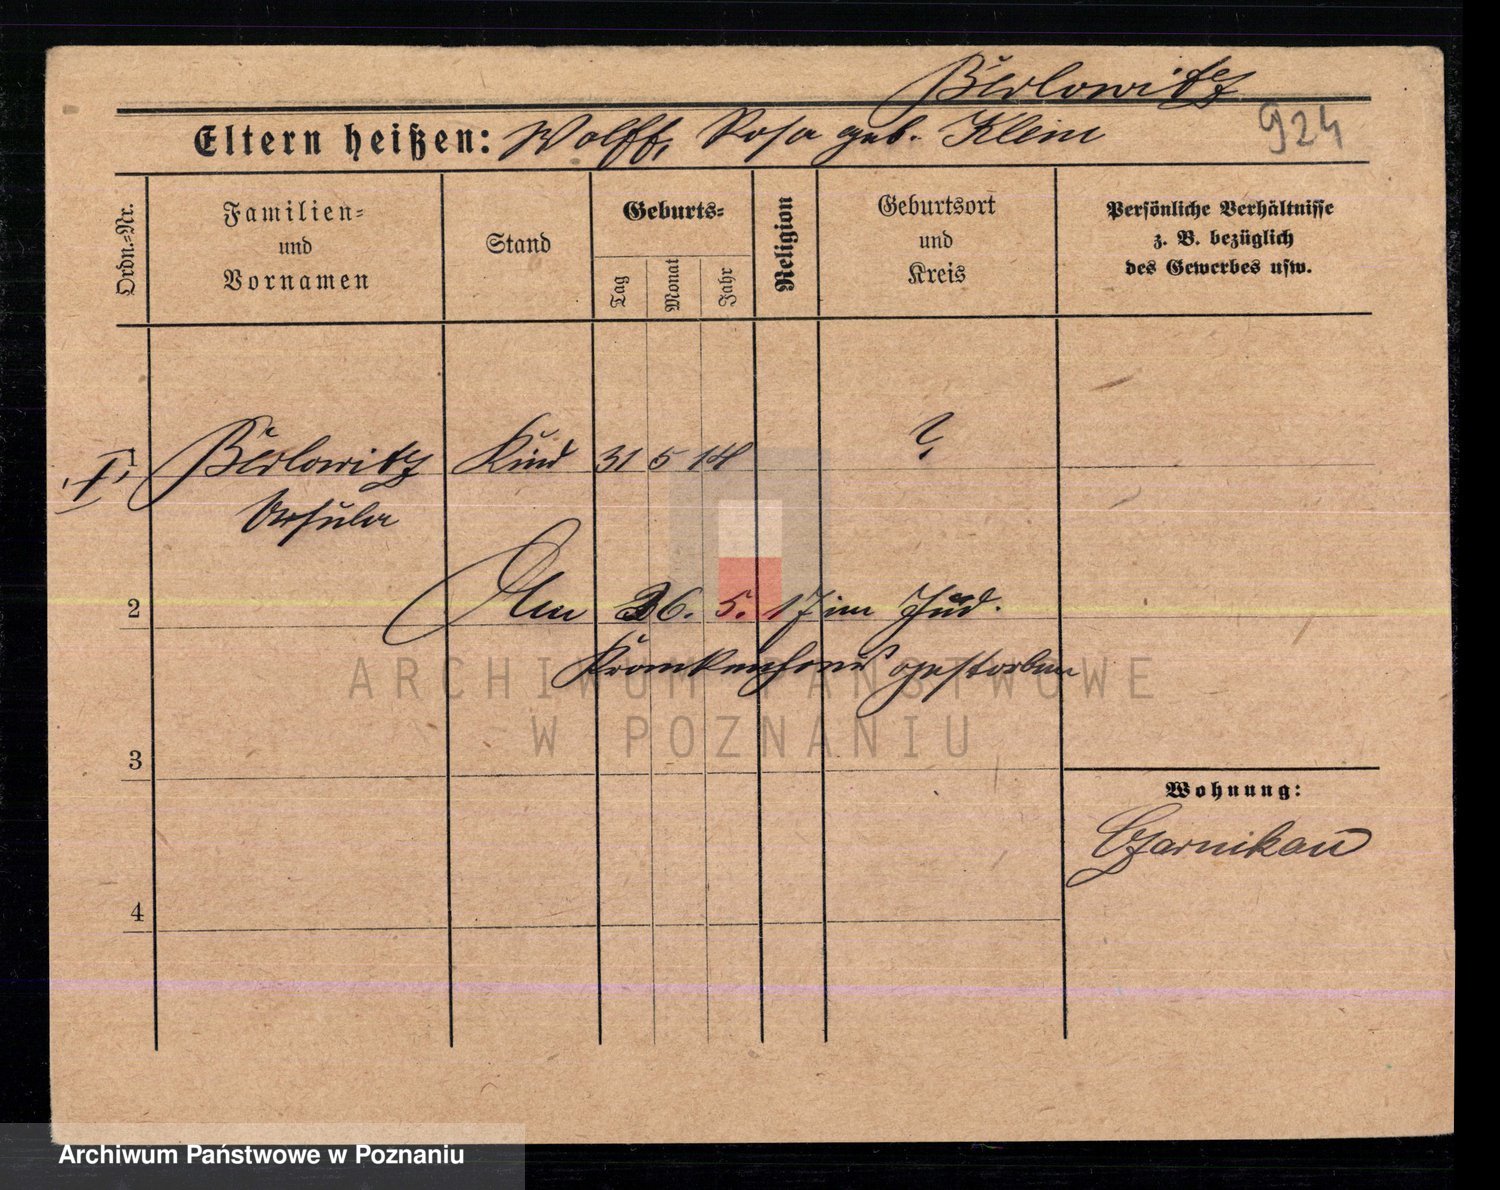 Bärlowitz
924
Eltern heißen: Wolff, Rosa geb. Klein
Ordn.-Nr.
Familien-
und
Vornamen
Stand
Geburts-
Tag
Monat
Jahr
Religion
Geburtsort
und
Kreis
Persönliche Verhältnisse
z. B. bezüglich
des Gewerbes usw.
I, Bärlowitz Kind 31 5 14 ?
Ursula
2 Am 26. 5. 17 im Jüd.
Krankenhaus gestorben
ARCHIWUM PAŃSTWOWE
W POZNANIU
3
Wohnung:
Czarnikau
4
Archiwum Państwowe w Poznaniu